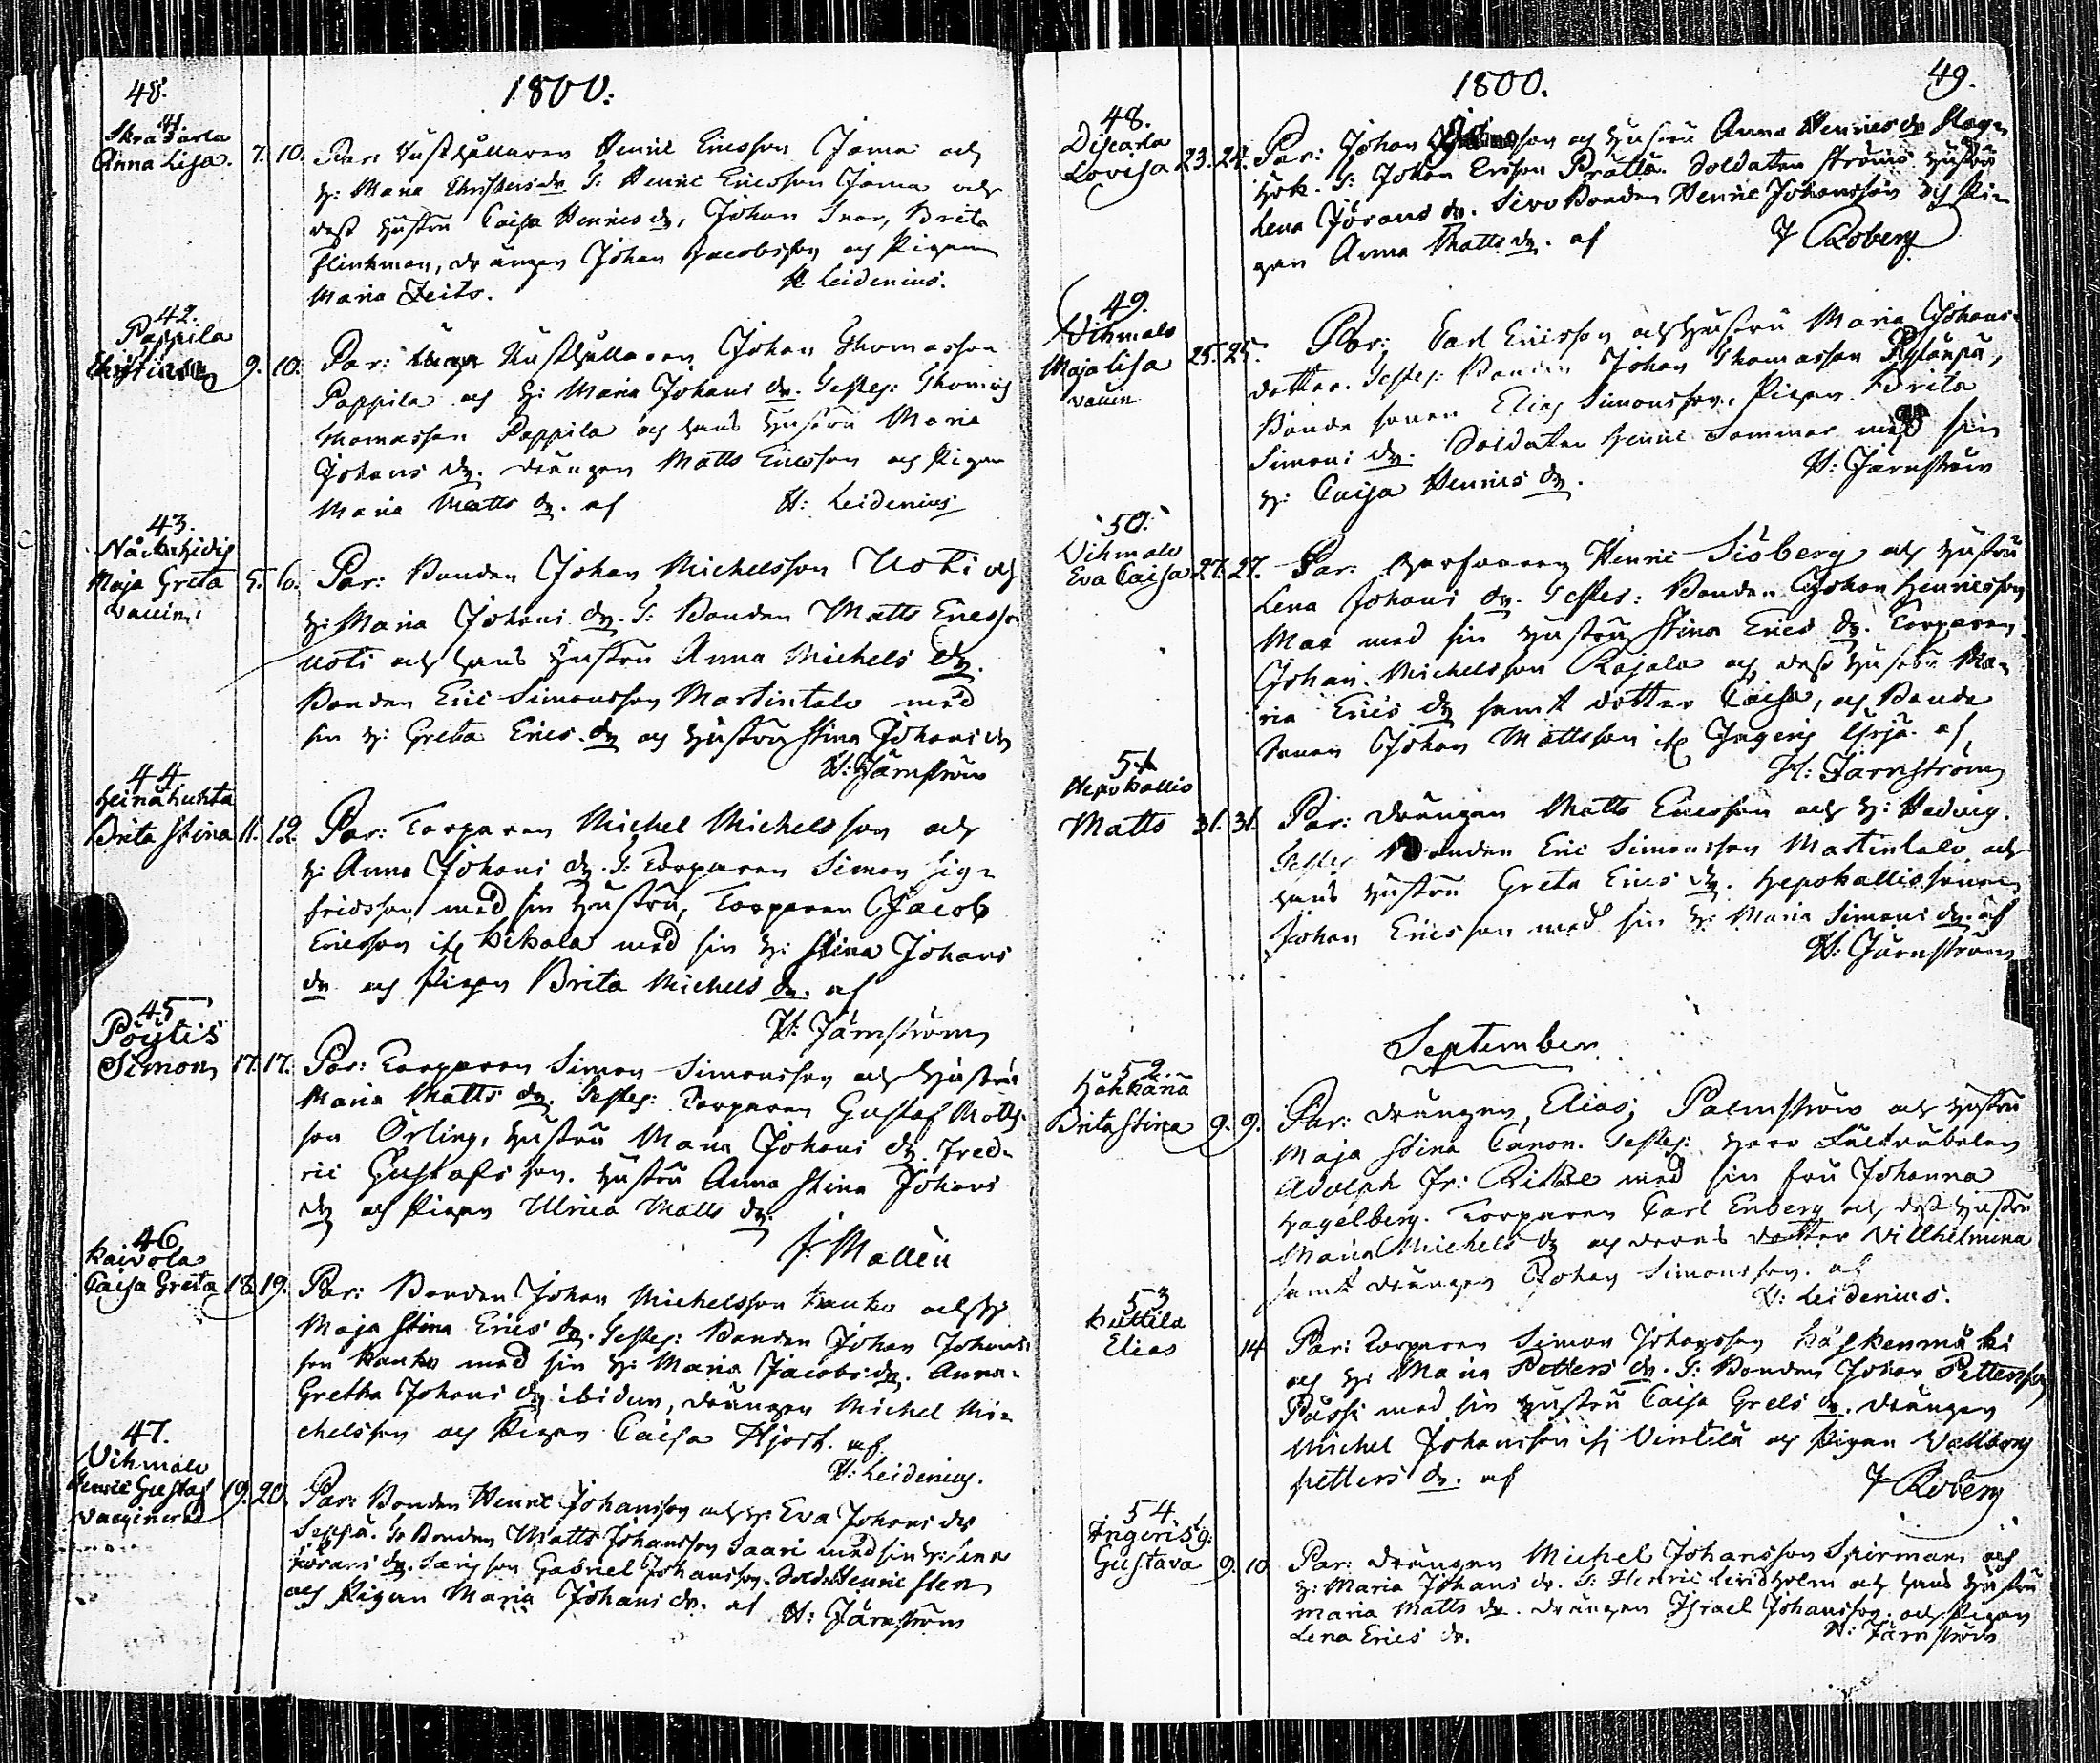 48.
1800.
41.
Anna Lisa. 7. 10. Par: Rusthållaren Henric Ericsson Jama och
h: Maria Christersdr T: Henric Ericsson Jama och
dess hustru Caisa Henricsdr, Johan Brita
Flinkman, drängen Johan Jacobsson och Pigan
Maria
H. Leidenius.
42.
Pappila
Christina 9. 10. Par: Rusthållaren Johan Thomasson
Pappila och h: Maria Johans dr. Testes: Thomas
Thomasson Pappila och hans hustru Maria
Johans dr. drängen Matts Ericsson och Pigan
Maria Matts dr. af H: Leidenius
43.
Maja Greta 5. 6. Par: Bonden Johan Michelsson Uoti och
vaccin:
h: Maria Johans dr. T: Bonden Matts Ericsson
Uoti och hans hustru Anna Michels dr.
Bonden Eric Simonsson Martintalo med
sin h: Greta Erics dr och hustru Stina Johans dr
H: Järnström
44
Heinähuhta
Brita Stina 11. 12. Par: Torparen Michel Michelsson och
h: Anna Johans dr. T: Torparen Simon Sig-
fridsson med sin hustru, Torparen Jacob
Ericsson med sin h: Stina Johans
dr och Pigan Brita Michels dr. af
H: Järnström
45
Pöytis
Simon 17. 17. Par: Torparen Simon Simonsson och hustru
Maria Matts dr. Testes: Torparen Gustaf Matts-
son Örling, hustru Maria Johans dr. Fred-
ric Gustafsson. hustru Anna Stina Johans
dr och Pigan Ulrica Matts dr.
J: Mallén
46
Kaivola
Caisa Greta 18. 19. Par: Bonden Johan Michelsson Kauko och h:
Maja Stina Erics dr. Testes: Bonden Johan Johans-
son Kauko med sin h: Maria Jacobs dr. Anna
Gretha Johans dr ibidem, drängen Michel Mi-
chelsson och Pigan Caisa Hjort. af
H: Leidenius.
47.
Vihmalo
Henric Gustaf 19. 20. Par: Bonden Henric Johansson och h: Eva Johans dr
vaccinerad
Seppä. T: Bonden Matts Johansson Saari med sin h: Lena
Jörans dr. Gabriel Johansson. Sold: Henric Sten
och Pigan Maria Johans dr. af H: Järnström
1800. 49.
48.
Lovisa 23. 24. Par: Johan son och hustru Anna Henrics dr
T: Johan Ericson Prättä. Soldaten Ströms hustru
Lena Jörans dr. Sivo Bonden Henric Johansson och Pi-
gan Anna Matts dr. af J Roberg
49.
Vihmalo
Maja Lisa 25. 25. Par: Carl Ericsson och hustru Maria Johans-
vaccin
dotter. Testes: Bonden Johan Thomasson
Bonde sonen Elias Simonsson, Pigan Brita
Simons dr. Soldaten Henric Sommar med sin
h: Caisa Henrics dr. H: Järnström
50.
Vihmalo
Eva Caisa 27. 27. Par: Henric Siöberg och hustru
Lena Johans dr. Testes: Bonden Johan Henricsson
med sin hustru Stina Erics dr. Torparen
Johan Michelsson Rajala och dess hustru Ma-
ria Erics dr samt dotter Caisa, och Bonde
sonen Johan Mattsson af
H: Järnström
51
Hepokallio
Matts 31. 31. Par: drängen Matts Ericsson och h: Hedvig.
Testes Bonden Eric Simonsson Martintalo och
hans hustru Greta Erics dr. Hepokallio sonen
Johan Ericsson med sin h: Maria Simons dr. af
H: Järnström
September
52.
Brita Stina 9. 9. Par: drängen Elias Palmström och hustru
Maja Stina Canon. Testes: herr
Adolph Fr: med sin fru Johanna
Hagelberg. Torparen Carl Enberg och dess hustru
Maria Michels dr och deras dotter Villhelmina
samt drängen Johan Simonsson. af
H: Leidenius.
53
Kuttila
Elias 14 Par: Torparen Simon Johansson
och h: Maria Petters dr. T: Bonden Johan Pettersson
Pässi med sin hustru Caisa Grels dr. drängen
Michel Johansson Vintala och Pigan Vallborg
Petters dr. af J Roberg
54
Ingeris g:
Gustava 9. 10 Par: drängen Michel Johansson Spirman och
h: Maria Johans dr. T: Henric Lindholm och hans hustru
Maria Matts dr. drängen Israel Johansson och Pigan
Lena Erics dr. H: Järnström